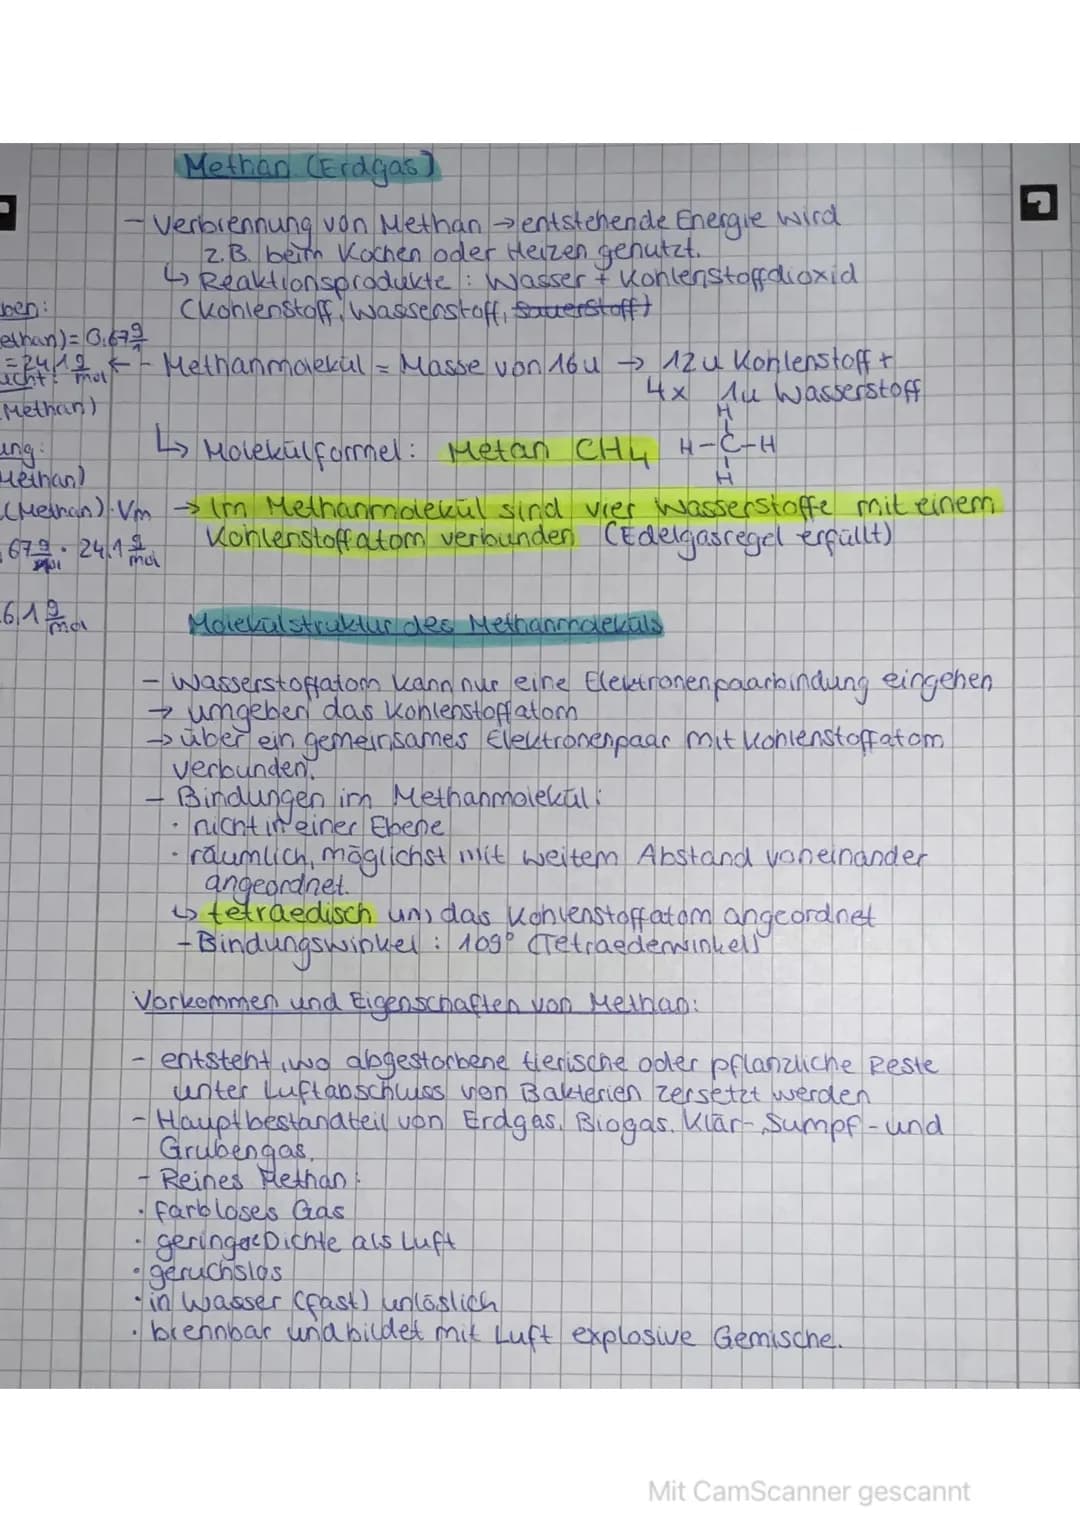 Methan (Erdgas)
- Verbrennung von Methan → entstehende Energie wird
z.B. beim Kochen oder Heizen genutzt.
↳ Reaktionsprodukte : Wasser + Kohlenstoffdioxid
(Kohlenstoff, Wasserstoff, Sauerstoff)
ben:
ethan) = 0,67 g/l
= 24,1 g/mol ← - Methanmolekül = Masse von 16u → 12u Kohlenstoff +
ucht: 4x 1u Wasserstoff
Methan)
ung: ↳ Molekülformel: Metan CH4
H
H-C-H
H
Methan)
(Methan) · Vm → Im Methanmolekül sind vier Wasserstoffe mit einem
67 g · 24,1 g/mol Kohlenstoffatom verbunden (Edelgasregel erfüllt)
6,1 g/mol
Molekülstruktur des Methanmoleküls
- Wasserstoffatom kann nur eine Elektronenpaarbindung eingehen
→ umgeben das Kohlenstoffatom
→ über ein gemeinsames Elektronenpaar mit Kohlenstoffatom
verbunden.
- Bindungen im Methanmolekül:
· nicht in einer Ebene
· räumlich, möglichst mit weitem Abstand voneinander
angeordnet.
↳ tetraedisch um das Kohlenstoffatom angeordnet
- Bindungswinkel : 109° (Tetraederwinkel)
Vorkommen und Eigenschaften von Methan:
- entsteht, wo abgestorbene tierische oder pflanzliche Reste
unter Luftabschluss von Bakterien zersetzt werden
- Hauptbestandteil von Erdgas, Biogas, Klär-, Sumpf- und
Grubengas.
- Reines Methan:
· farbloses Gas
· geringere Dichte als Luft
· geruchslos
· in Wasser (fast) unlöslich
· brennbar und bildet mit Luft explosive Gemische.
Mit CamScanner gescannt